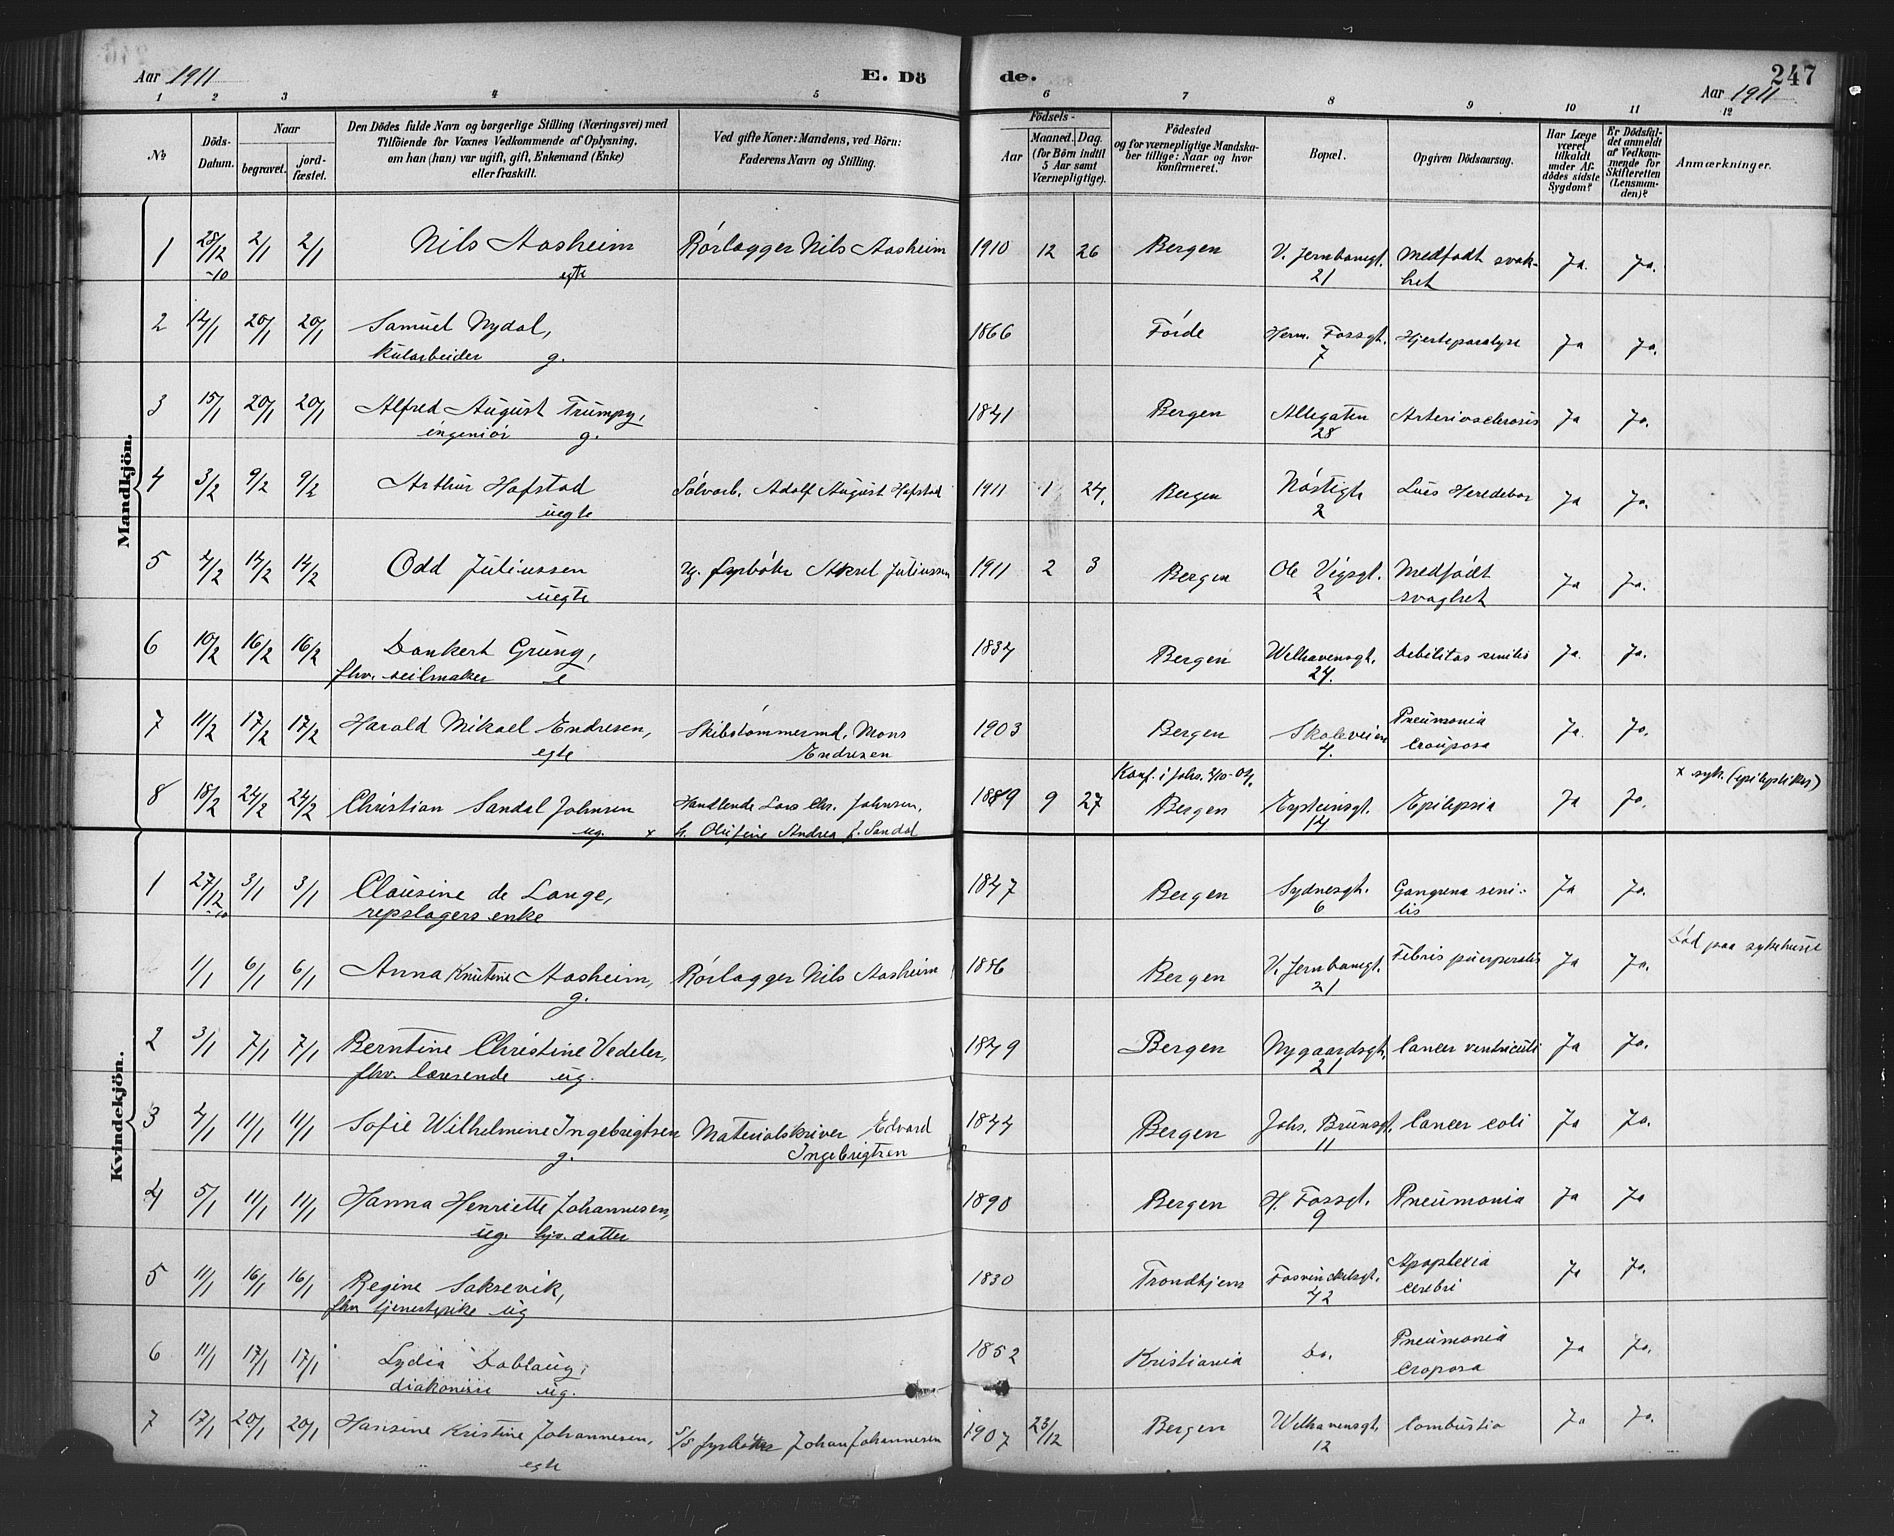 Aar 1911 E. Dö de. 247
Aar 1911
1 2 3 4 5 6 7 8 9 10 11 12
No
Döds-Datum.
Naar
begravet.
jord-fæstet.
Den Dödes fulde Navn og borgerlige Stilling (Næringsvei) med
Tilföiende for Voxnes Vedkommende af Oplysning,
om han (hun) var ugift, gift, Enkemand (Enke)
eller fraskilt.
Ved gifte Koner: Mandens, ved Börn:
Faderens Navn og Stilling.
Födsels-
Aar
Maaned.
Dag.
(for Börn indtil
5 Aar samt
Værnepligtige).
Födested
og for værnepligtige Mandska-
ber tillige: Naar og hvor
konfirmeret.
Bopæl.
Opgiven Dödsaarsag.
Har Læge
været
tilkaldt
under Af-
dödes sidste
Sygdom?
Er Dödsfal-
det anmeldt
af Vedkom-
mende for
Skifteretten
(Lensman-
den)?
Anmærkninger.
Mandkjön.
1 28/12 -10 2/1 2/1 Nils Aasheim Rörlægger Nils Aasheim 1910 12 26 Bergen V. Jernbanegt. Medfødt svak- Ja. Ja.
egte 21 het
2 14/1 20/1 20/1 Samuel Nydal, 1866 Førde Herm. Fossgt. Hjerteparalyse Ja Ja.
kularbeider g. 7
3 15/1 20/1 20/1 Alfred August Trumpy, 1841 Bergen Allegaten Arteriosclerosis Ja Ja.
ingeniör g. 28
4 3/2 9/2 9/2 Arthur Hofstad Sølvarb. Adolf August Hofstad 1911 1 24. Bergen Nøstegt. Lues Ja Ja.
uegte 2
5 4/2 14/2 14/2 Odd Juliussen Ug. fyrbøter Aksel Juliussen 1911 2 3 Bergen Ole Vigsgt. Medfødt Ja Ja.
uegte 2 svaghet
6 10/2 16/2 16/2 Dankert Grung, 1834 Bergen Welhavensgt. Debilitas senilis Ja. Ja.
fhv. seilmaker e 24.
7 11/2 17/2 17/2 Harald Mikael Endresen, Skibstømmermd. Mons 1903 Bergen Skoleveien Pneumonia Ja. Ja.
egte Endresen 4. crouposa
Konf. i Johs. 2/10-04. x syk. (epileptiker)
8 18/2 24/2 24/2 Christian Sandal Johnsen Handlende Lars Chr. Johnsen, 1889 9 27 Bergen Eysteinsgt. Epilepsia Ja Ja.
ug. x h. Olufine Andrea f. Sandal 14
Kvindekjön.
1 27/12 -10 3/1 3/1 Clausine de Lange, 1847 Bergen Sydnesgt. Gangrena seni- Ja Ja.
repslagers enke 6 lis
Død paa sykehuset
1/1 6/1 6/1 Anna Knutine Aasheim, Rørlægger Nils Aasheim 1886 Bergen V. Jernbanegt. Febris puerperalis Ja Ja.
g. 21
2 3/1 7/1 7/1 Berntine Christine Vedeler, 1849 Bergen Nygaardsgt. Cancer ventriculi Ja Ja.
fhv. lærerinde ug. 21
3 4/1 11/1 11/1 Sofie Wilhelmine Ingebrigtsen Materialskriver Edvard 1844 Bergen Johs. Brunsgt. Cancer coli Ja Ja.
g. Ingebrigtsen 11
4 5/1 11/1 11/1 Hanna Henriette Johannesen, 1890 Bergen H. Fossgt. Pneumonia Ja Ja
ug. hjv. datter 9
5 11/1 16/1 16/1 Regine Saksevik, 1830 Trondhjem Fosvinckelsgt. Apoplexia Ja Ja.
fhv tjenestepike ug 42 cerebri
6 11/1 17/1 17/1 Lydia Dablaug, 1852 Kristiania Do. Pneumonia Ja Ja.
diakonisse ug. Croposa
7 17/1 20/1 20/1 Hansine Kristine Johannesen, S/S fyrbøter Johan Johannesen 1907 23/12 Bergen Welhavensgt. Combustio Ja Ja.
egte 12